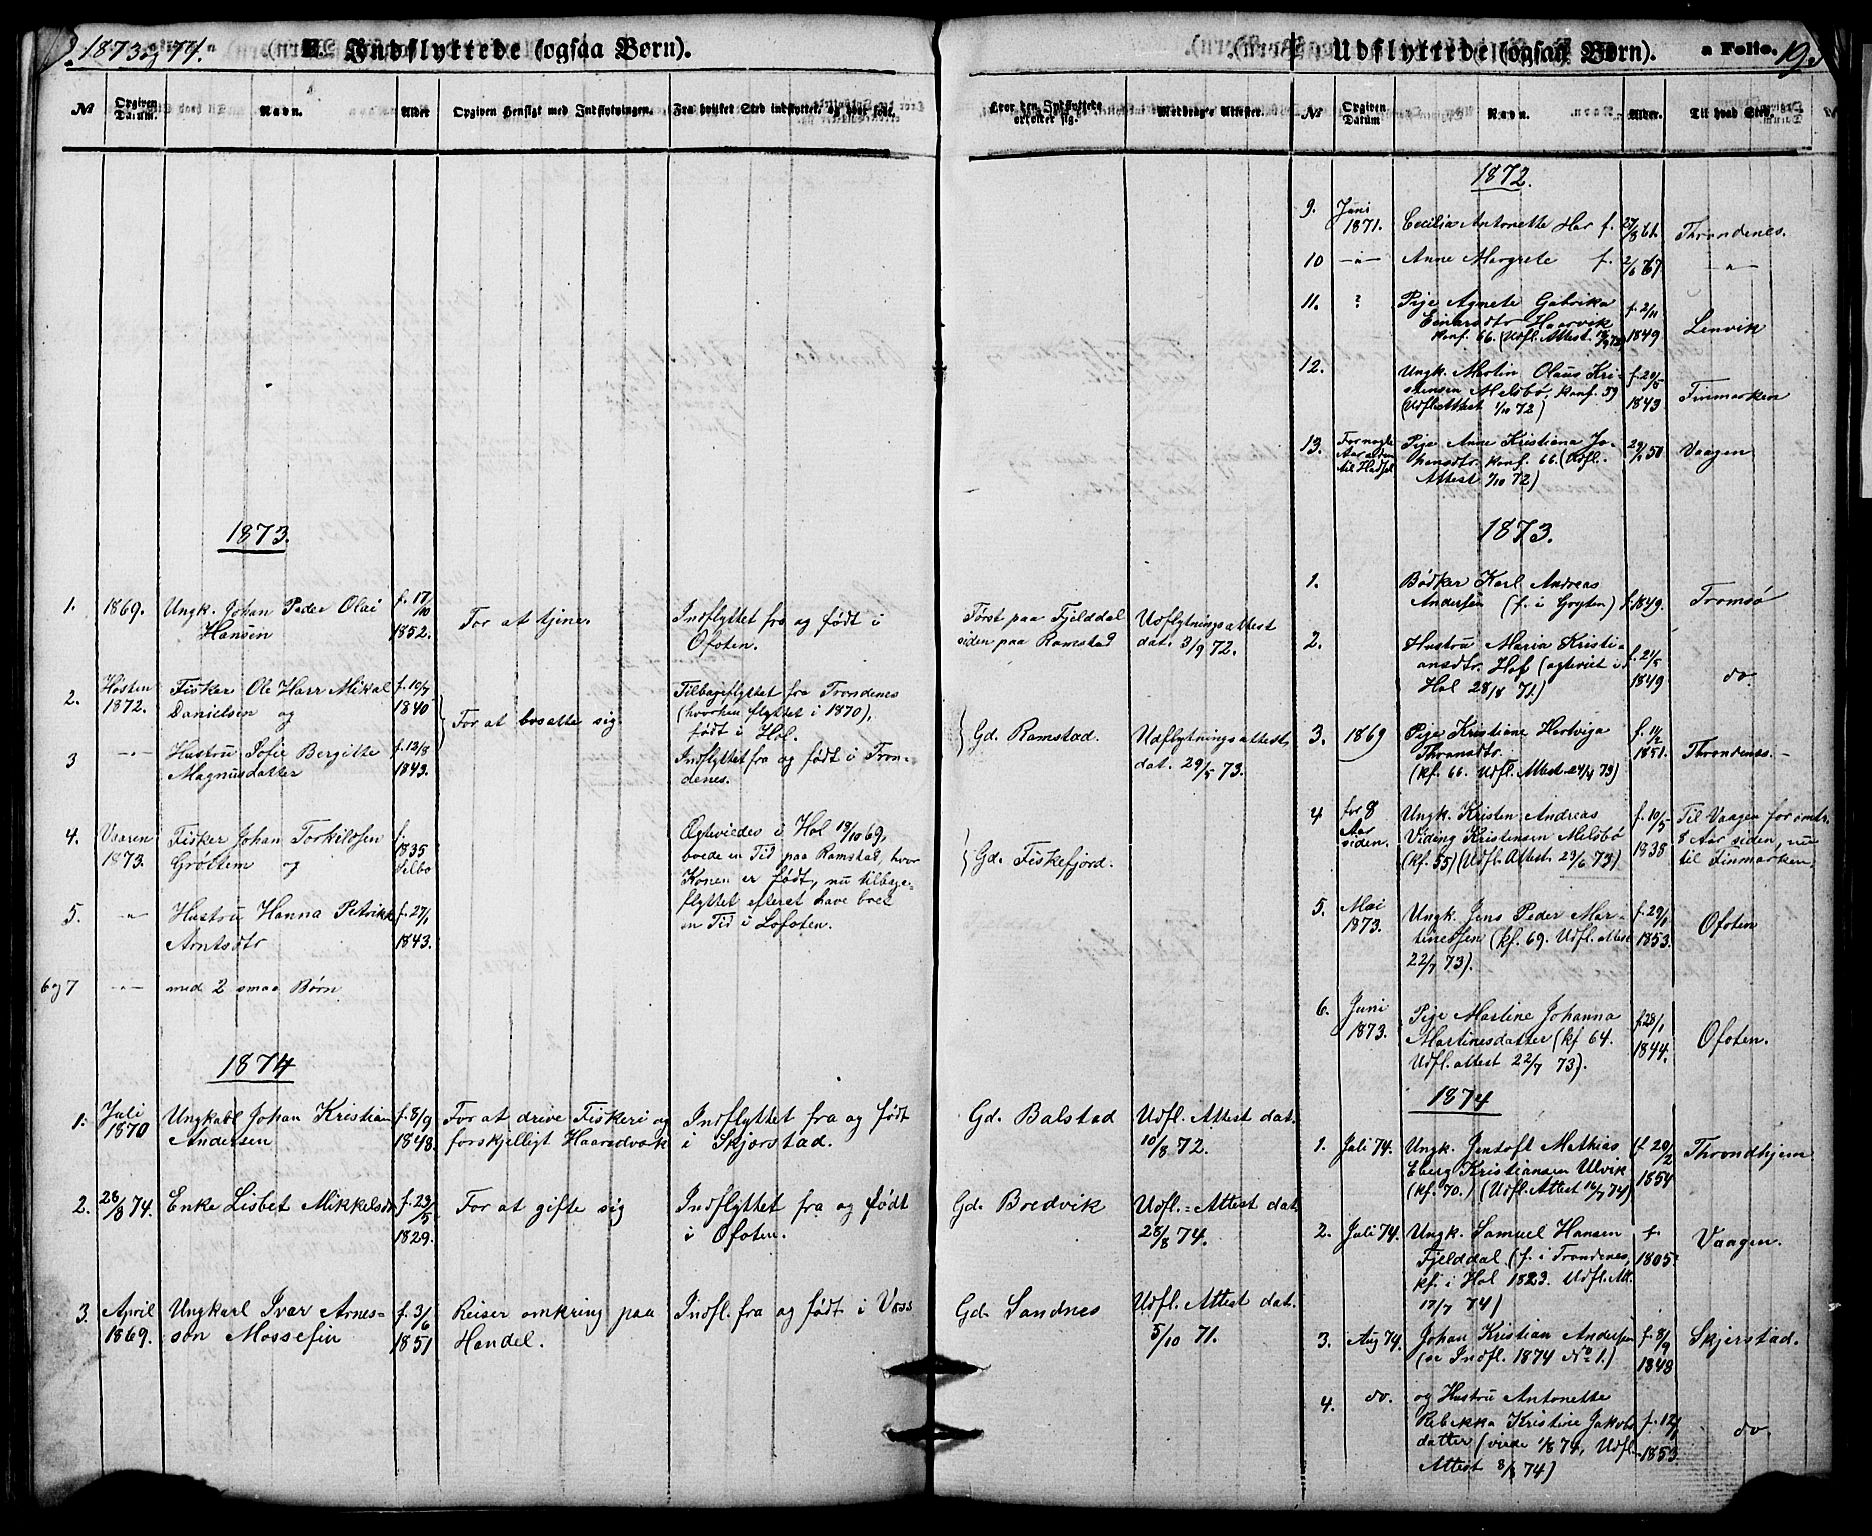 1873 og 74. E. Indflyttede (ogsaa Børn).
№ Opgiven Datum. Navn. Alder Opgiven Hensigt med Indflytningen. Fra hvilket Sted indflyttet, og hvor født.
1873.
1. 1869. Ungk. Johan Peder Olai f. 17/10 For at tjene. Indflyttet fra og født i
Hansen 1852. Ofoten.
2. Høsten Fisker Ole Harr Mikal f. 10/7 For at bosætte sig. Tilbageflyttet fra Trondenes
1872. Danielsen og 1840 (hvorhen flyttet i 1870),
født i Hol.
3 -"- Hustru Sofie Bergitte f. 12/8 Indflyttet fra og født i Tron-
Magnusdatter 1843. denes.
4. Vaaren Fisker Johan Torkildsen f. Ægteviedes i Hol 18/10 69,
1873. Grøttem og 1835 boede en Tid paa Ramstad, hvor
Selbo Konen er født, nu tilbage-
5. -"- Hustru Hanna Petrikke f. 27/1 flyttet efterat have boet
Arntsdtr 1843. en Tid i Lofoten.
6 og 7 -"- med 2 smaa Børn
1874
1. Juli Ungkarl Johan Kristian f. 8/9 For at drive Fiskeri og Indflyttet fra og født
1870 Andersen 1848. forskjelligt Haandværk i Skjerstad.
2. 28/8 74. Enke Lisbet Mikkelsdtr f. 23/5 For at gifte sig Indflyttet fra og født
1829. i Ofoten.
3. April Ungkarl Ivar Arnes- f. 3/6 Reiser omkring paa Indfl. fra og født i Voss
1869. søn Mossefin 1851 Handel.
Udflyttede (ogsaa Børn). a Folio. 193
Hvor den Indflyttede opholder sig. Medbragte Attester. № Opgiven Datum Navn. Alder. Til hvad Sted.
Først paa Fjelddal Udflytningsattest
siden paa Ramstad dat. 3/9 72.
Gd. Ramstad. Udflytningsattest
dat. 29/5 73.
Gd. Fiskefjord.
Gd. Balstad Udfl. Attest dat.
10/8 72.
Gd. Bredvik Udfl.=Attest dat.
28/8 74.
Gd. Sandnes Udfl. Attest dat.
5/10 71.
1872.
9. Juni 1871. Cecilia Antonette Har f. 27/8 61. Throndenes.
10 -"- Anne Margrete f. 2/6 67 -"-
11. ? Pige Agnete Gabrika f. 2/11 Lenvik
Einarsdtr Haarvik 1849
konf. 66. (Udfl. Attest.
12. Ungk. Martin Olaus Kri- f. 20/5 Finmarken
stensen Melsbø, konf. 59 1843
(Udfl. Attest 1/10 72)
13. For nogle Pige Anne Kristiana Jo- 50 Vaagen
Aar siden hansdtr. konf. 66. (Udfl.
til Hadsel Attest 1/10 72)
1873.
1. Bødker Karl Andreas Tromsø
Andersen (f. i Gryten) f. 1849.
2. Hustru Maria Kristi- f. 21/5 do.
ansdtr. Hof (ægteviet i 1849
Hol 28/8 71)
3. 1869 Pige Kristiane Hartviga f. 11/2 Throndenes.
Thransdtr. 1851.
(kf. 66. Udfl. Attest 24/4 73)
4 for 8 Ungk. Kristen Andreas f. 10/5 Til Vaagen for omtr.
Aar Viding Kristensen Melsbø 1838 8 Aar siden, nu
siden. (kf. 55) (Udfl. Attest. 23/6 73) til Finmarken,
5. Mai Ungk. Jens Peder Mar- f. 29/1 Ofoten
1873. tinessen (kf. 69. Udfl. attest 1853.
22/7 73).
6. Juni Pige Martine Johanna f. 28/1 Ofoten.
1873. Martinesdatter (kf 64. 1844.
Udfl. attest 22/7 73).
1874
1. Juli 74. Ungk. Jentoft Mathias (f. 20/2 Throndhjem
Eberg Kristiansen Ulvik 1854
(kf. 70.) (Udfl. Attest 16/7 74)
2. Juli 74. Ungk. Samuel Hansen f. Vaagen.
Fjelddal (f. i Trondenes, 1805.
kf. i Hol 1823. Udfl. Att.
17/7 74)
3. Aug 74. Johan Kristian Andersen f. 8/9 Skjerstad.
(se Indfl. 1874 No 1.) 1848
4. do. og Hustru Antonette f. 12/1 do.
Rebekka Kristine Jakobs- 1853.
datter (viede 1/8 74, Udfl.
Attest 8/8 74)